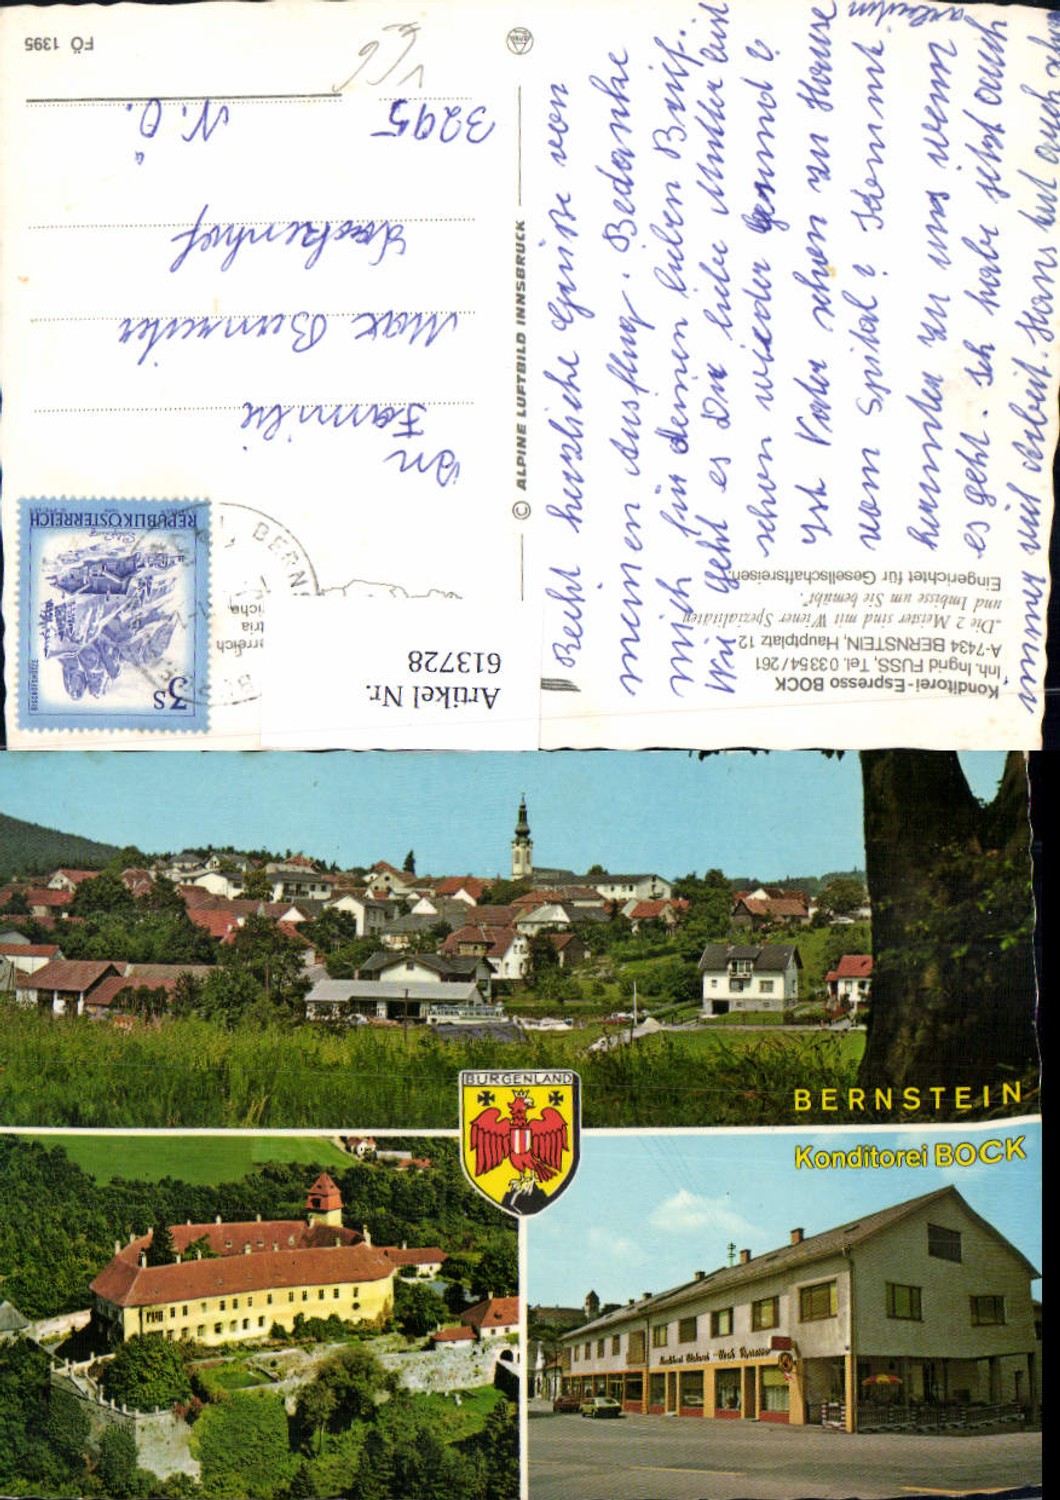 Konditorei-Espresso BOCK
Inh. Ingrid FUSS, Tel. 03354/261
A-7434 BERNSTEIN, Hauptplatz 12
„Die 2 Meister sind mit Wiener Spezialitäten
und Imbisse um Sie bemüht".
Eingerichtet für Gesellschaftsreisen.
Recht herzliche Grüße von
meinen Ausflug. Bedanke
mich für deinen lieben Brief.
Wie geht es Dir liebe Mutter bist
schon wieder gesund?
Ist Vater schon zu Hause
vom Spital? Kommt
herunter zu uns wenn
es geht. Ich habe jetzt auch
immer viel Arbeit. Hans hat auch
arbeiten
© ALPINE LUFTBILD INNSBRUCK
REPUBLIK ÖSTERREICH
3S
BISCHOFSMÜTZE
BERN
An
Familie
Max
Lackenhof
3295 N.Ö.
FÖ 1395
Artikel Nr.
613728
BERNSTEIN
BURGENLAND
Konditorei BOCK